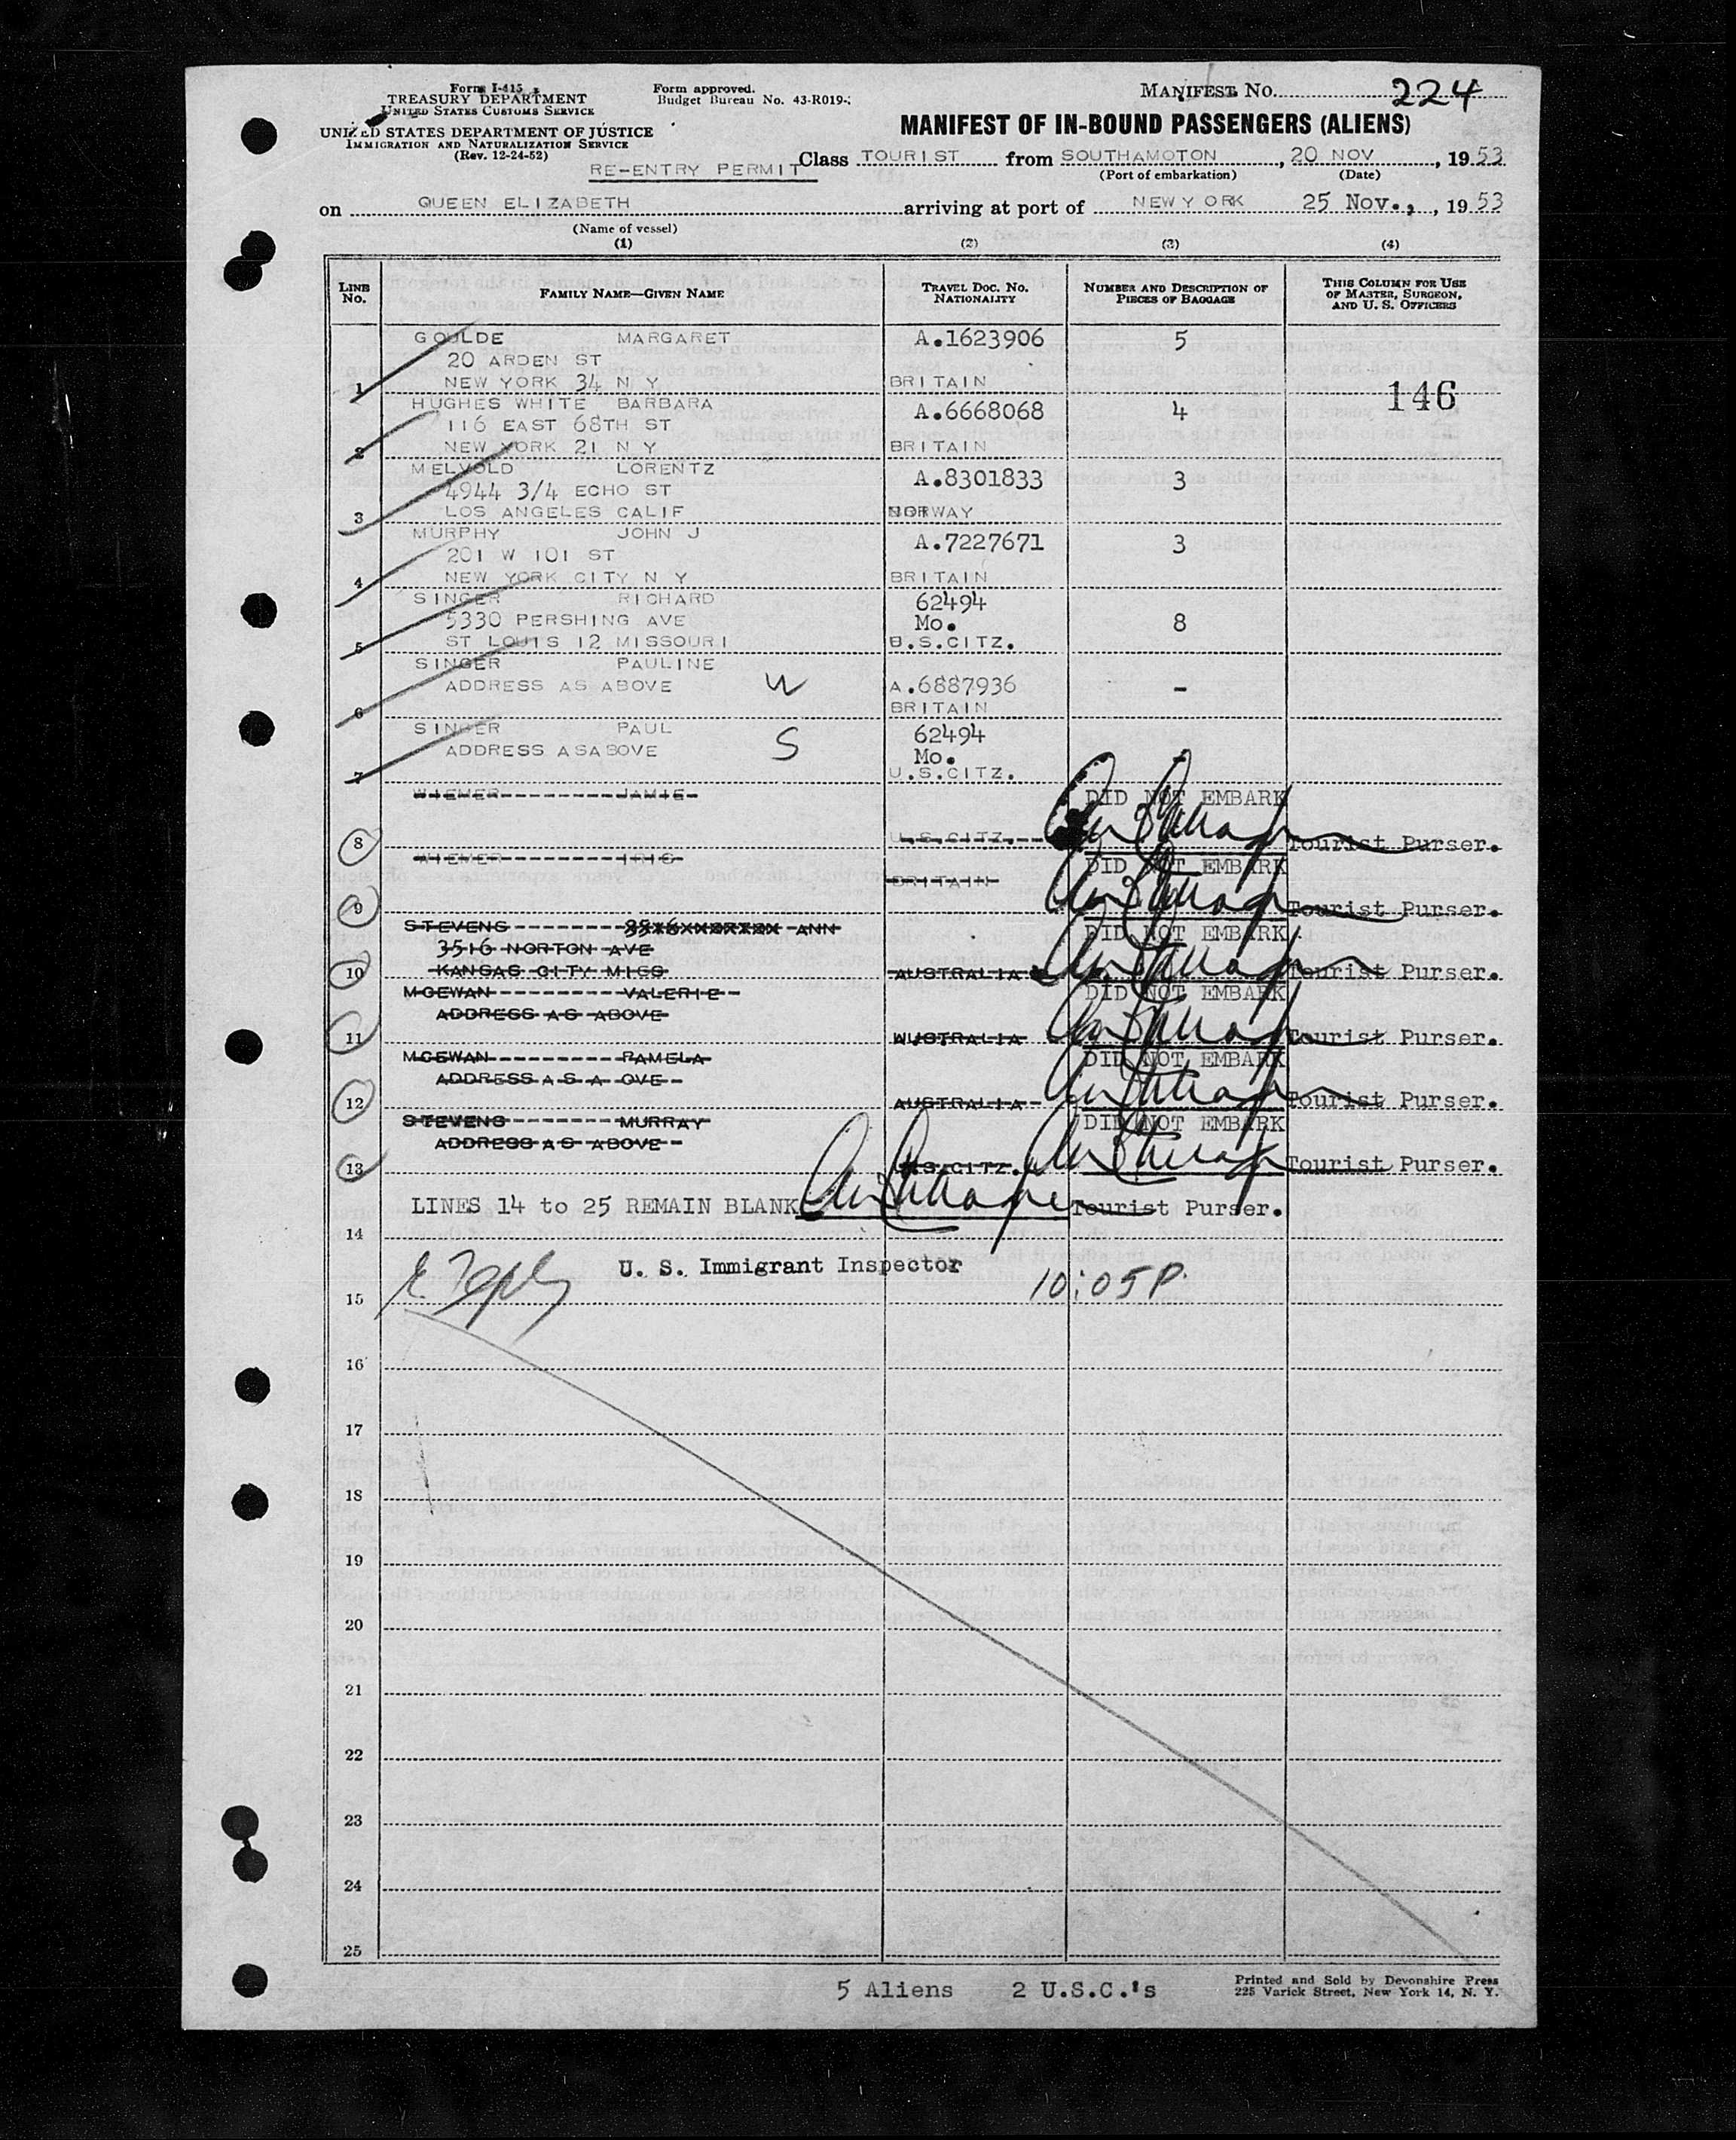 Form I-415
TREASURY DEPARTMENT
UNITED STATES CUSTOMS SERVICE
UNITED STATES DEPARTMENT OF JUSTICE
IMMIGRATION AND NATURALIZATION SERVICE
(Rev. 12-24-52)
Form approved.
Budget Bureau No. 43-R019-
MANIFEST NO. 224
MANIFEST OF IN-BOUND PASSENGERS (ALIENS)
RE-ENTRY PERMIT
Class TOURIST from SOUTHAMOTON, 20 NOV, 1953
(Port of embarkation) (Date)
on QUEEN ELIZABETH arriving at port of NEWYORK 25 Nov., , 1953
(Name of vessel)
(1) (2) (3) (4)
LINE NO. FAMILY NAME—GIVEN NAME TRAVEL DOC. NO. NATIONALITY NUMBER AND DESCRIPTION OF PIECES OF BAGGAGE THIS COLUMN FOR USE OF MASTER, SURGEON, AND U. S. OFFICERS
GOULDE MARGARET A.1623906 5
20 ARDEN ST
1 NEW YORK 34 N Y BRITAIN 146
HUGHES WHITE BARBARA A.6668068 4
116 EAST 68TH ST
2 NEW YORK 21 N Y BRITAIN
MELVOLD LORENTZ A.8301833 3
4944 3/4 ECHO ST
3 LOS ANGELES CALIF NORWAY
MURPHY JOHN J A.7227671 3
201 W 101 ST
4 NEW YORK CITY N Y BRITAIN
SINGER RICHARD 62494
5330 PERSHING AVE Mo. 8
5 ST LOUIS 12 MISSOURI B.S.CITZ.
SINGER PAULINE
ADDRESS AS ABOVE W A.6887936 -
6 BRITAIN
SINGER PAUL 62494
ADDRESS ASABOVE S Mo. -
7 U.S.CITZ.
WIEMER JAMIE DID NOT EMBARK
8 U.S.CITZ. Tourist Purser.
WIEMER IRIS DID NOT EMBARK
BRITAIN
9 Tourist Purser.
STEVENS 3516 NORTON ANN DID NOT EMBARK
3516 NORTON AVE
10 KANSAS CITY MISS AUSTRALIA Tourist Purser.
MCEWAN VALERIE DID NOT EMBARK
ADDRESS AS ABOVE
11 WUSTRALIA Tourist Purser.
MCEWAN PAMELA DID NOT EMBARK
ADDRESS A S A OVE
12 AUSTRALIA Tourist Purser.
STEVENS MURRAY DID NOT EMBARK
ADDRESS AS ABOVE
13 U.S.CITZ. Tourist Purser.
LINES 14 to 25 REMAIN BLANK Tourist Purser.
14
U. S. Immigrant Inspector 10:05P.
15
16
17
18
19
20
21
22
23
24
25
5 Aliens 2 U.S.C.'s
Printed and Sold by Devonshire Press
225 Varick Street, New York 14, N. Y.